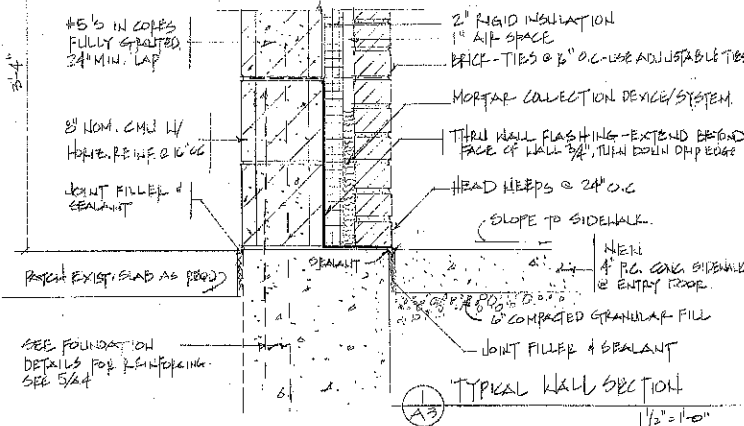 #5'S IN CORES
FULLY GROUTED
24" MIN. LAP
3'-4"
8" NOM. CMU W/
HORIZ. REINF @ 16" OC
JOINT FILLER &
SEALANT
PATCH EXIST. SLAB AS REQD
SEE FOUNDATION
DETAILS FOR REINFORCING.
SEE 5/A4
2" RIGID INSULATION
1" AIR SPACE
BRICK-TIES @ 16" O.C-USE ADJUSTABLE TIES
MORTAR COLLECTION DEVICE/SYSTEM
THRU WALL FLASHING-EXTEND BEYOND
FACE OF WALL 3/4", TURN DOWN DRIP EDGE
HEAD WEEPS @ 24" O.C
SLOPE TO SIDEWALK.
SEALANT
NEW
4" P.C. CONC. SIDEWALK
@ ENTRY DOOR.
6" COMPACTED GRANULAR FILL
JOINT FILLER & SEALANT
1
A3
TYPICAL WALL SECTION
1 1/2"=1'-0"